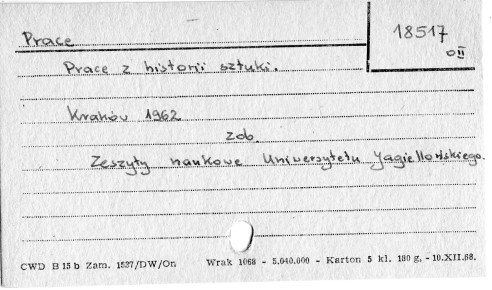 Prace
18517
o II
Prace z historii sztuki.
Kraków 1962
zob.
Zeszyty naukowe Uniwersytetu Jagiellońskiego.
CWD B 15 b Zam. 1537/DW/On Wrak 1068 - 5.040.000 - Karton 5 kl. 180 g. - 10.XII.68.